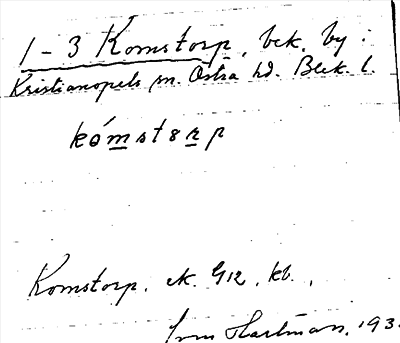 1-3 Komstorp, bek. by:
Kristianopels sn. Östra hd. Blek. l.
kómst8rp
Komstorp. ek. G12, kb.,
Hartman, 193